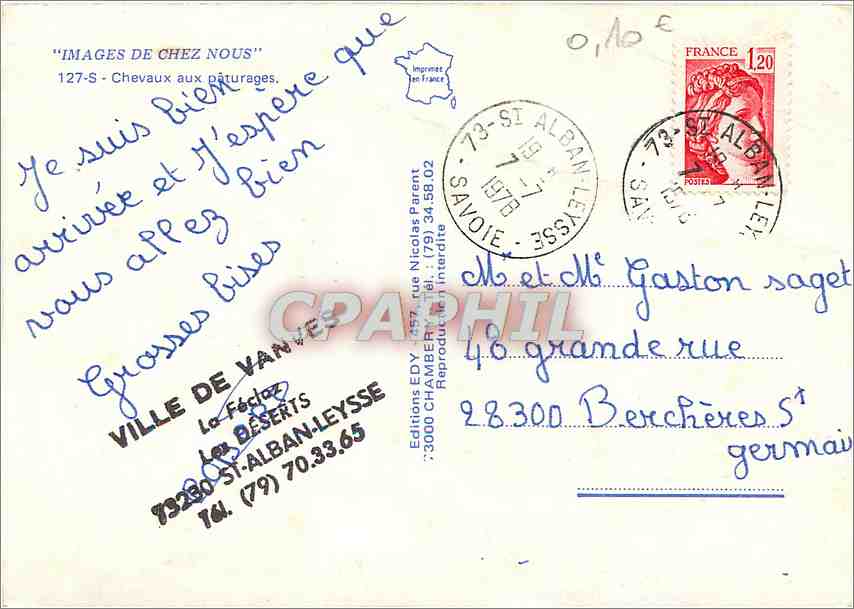 "IMAGES DE CHEZ NOUS"
127-S - Chevaux aux pâturages.
Je suis bien
arrivée et J'espère que
vous allez bien
Grosses bises
VILLE DE VANVES
La Féclaz
Les DÉSERTS
73230 ST-ALBAN-LEYSSE
Tél. (79) 70.33.65
Imprimée
en France
Editions EDY - 457, rue Nicolas Parent
73000 CHAMBERY - Tél. : (79) 34.58.02
Reproduction interdite
0,10 €
FRANCE
1,20
POSTES
73-ST ALBAN-LEYSSE
19 H
7 - 7
1978
SAVOIE
73-ST ALBAN-LEY
19 H
7 - 7
1978
SAV
M et Me Gaston saget
48 grande rue
28300 Berchères St
germai
CPARPHIL